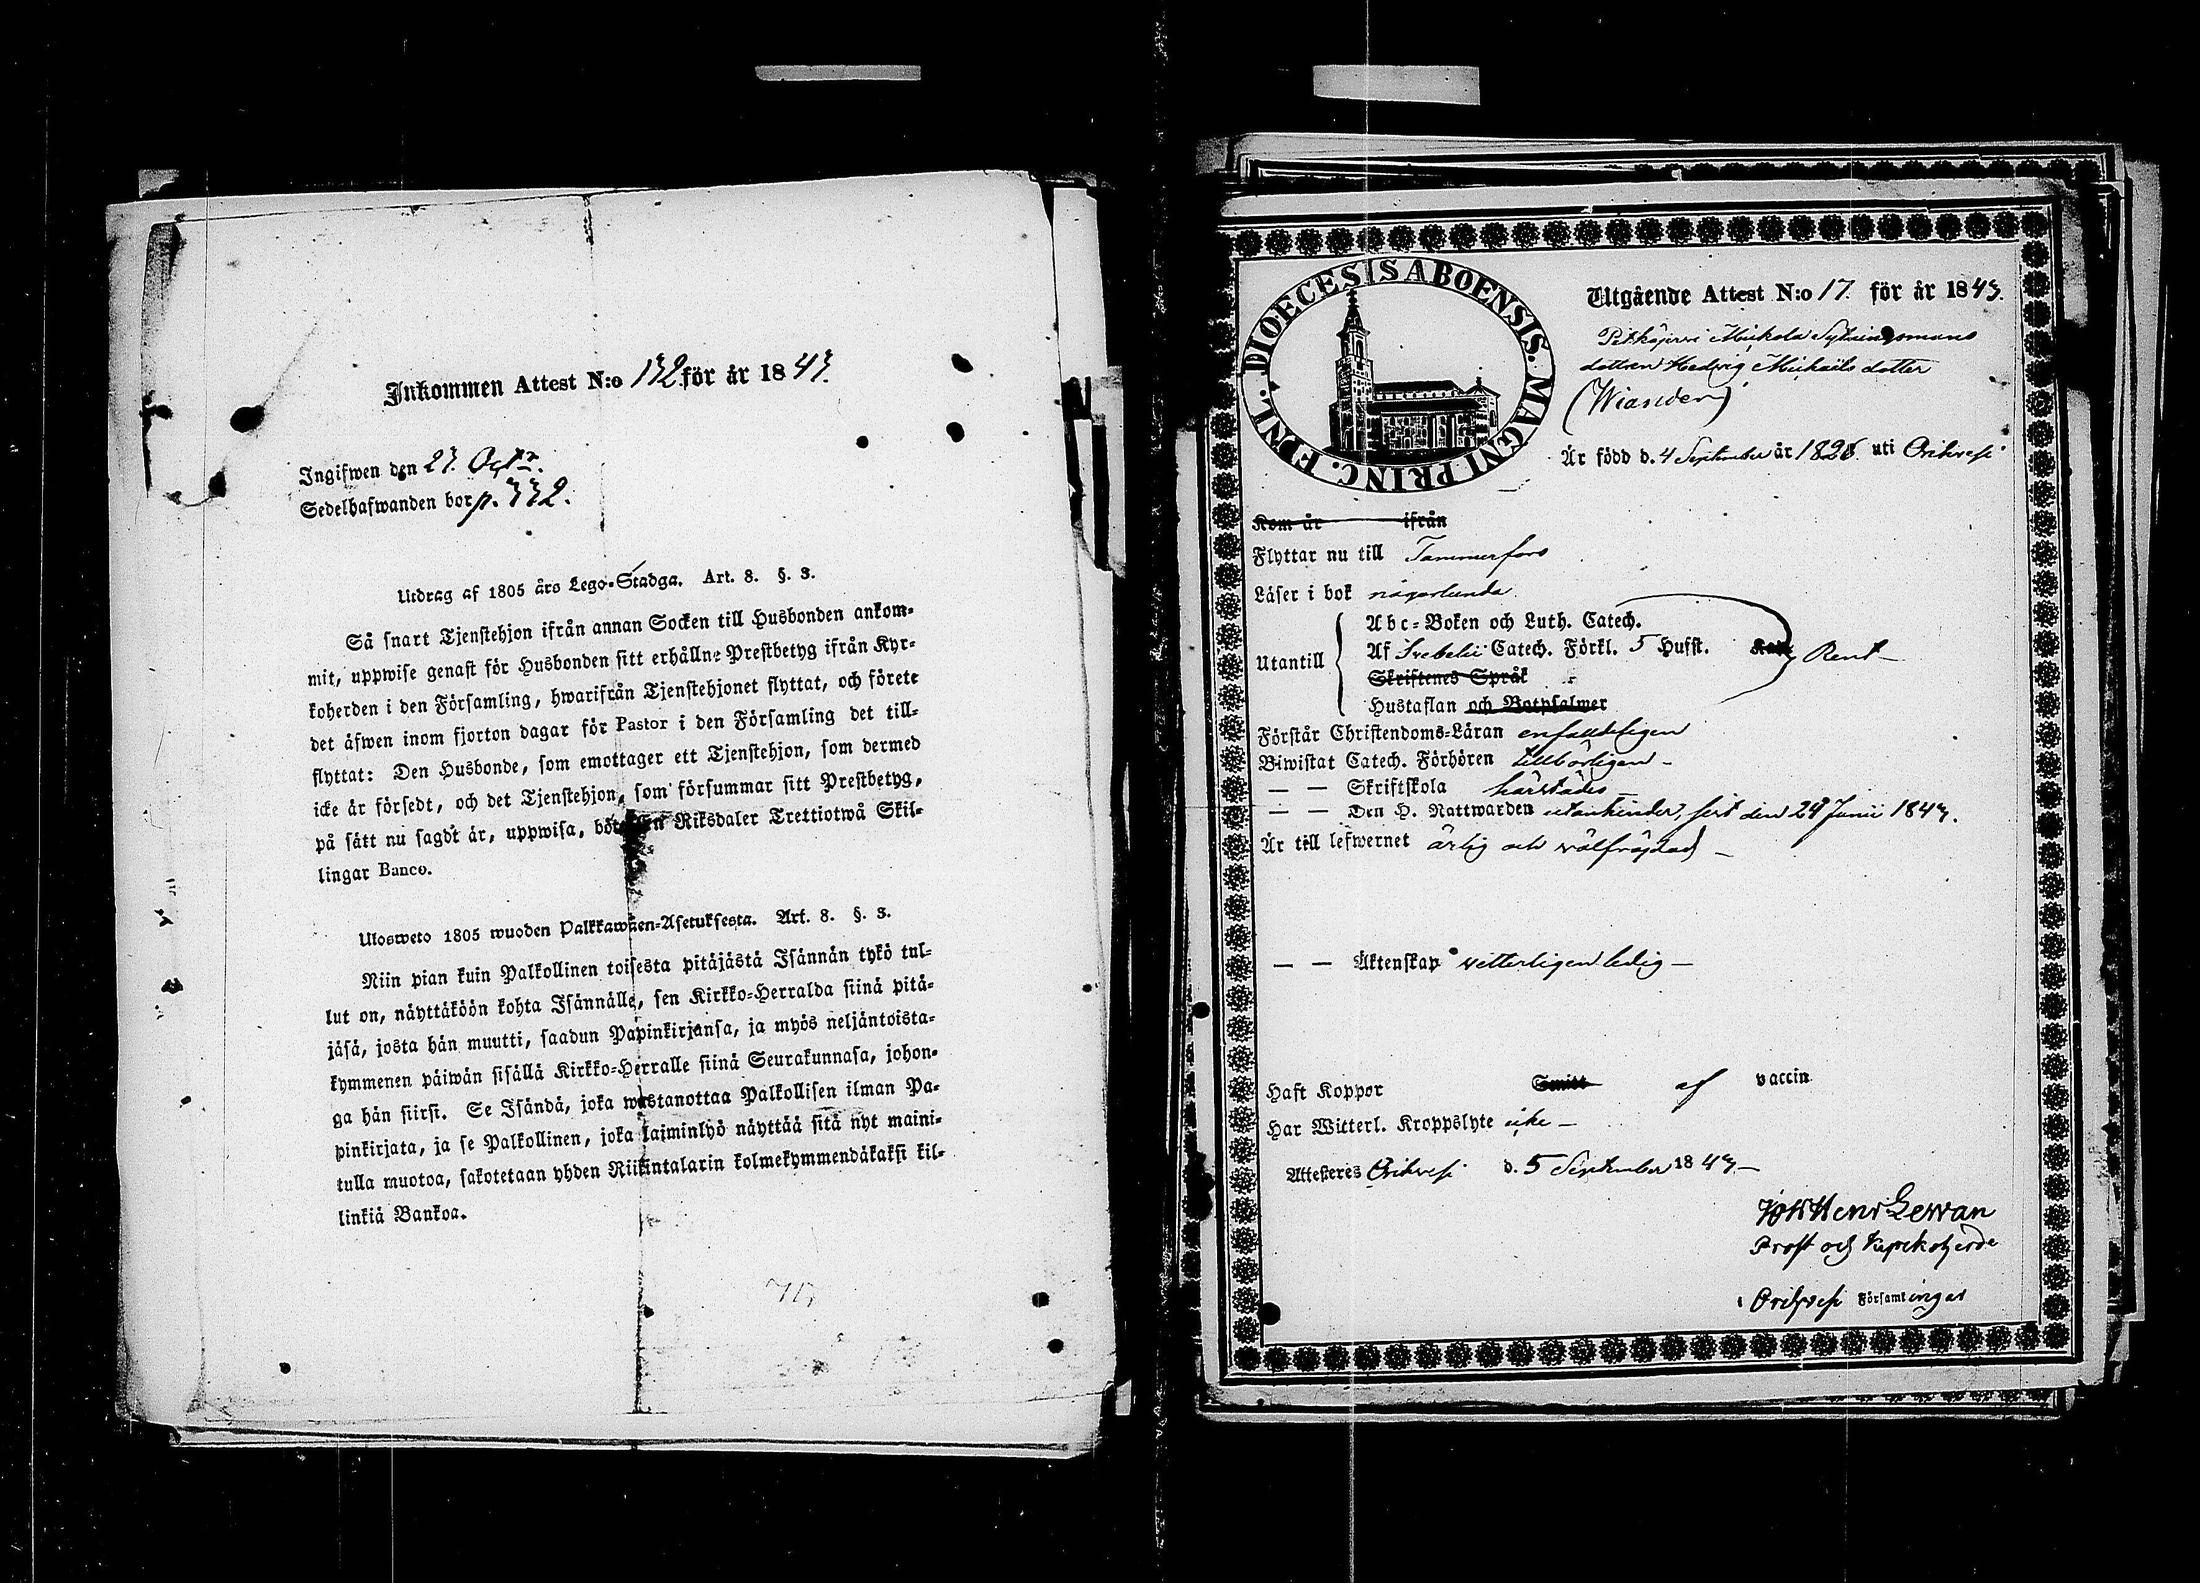 Inkommen Attest N:o 132 för år 1843.
Ingifwen den 23. Octr.
Sedelhafwanden bor p. 332.
Utdrag af 1805 års Lego-Stadga. Art. 8. §. 3.
Så snart Tjenstehjon ifrån annan Socken till Husbonden ankom-
mit, uppwise genast för Husbonden sitt erhållne Prestbetyg ifrån Kyr-
koherden i den Församling, hwarifrån Tjenstehjonet flyttat, och förete
det äfwen inom fjorton dagar för Pastor i den Församling det till-
flyttat: Den Husbonde, som emottager ett Tjenstehjon, som dermed
icke är försedt, och det Tjenstehjon, som försummar sitt Prestbetyg,
på sätt nu sagdt är, uppwisa, böte en Riksdaler Trettiotwå Skil-
lingar Banco.
Ulosweto 1805 wuoden Palkkawäen-Asetuksesta. Art. 8. §. 3.
Niin pian kuin Palkollinen toisesta pitäjästä Isännän tykö tul-
lut on, näyttäköön kohta Isännälle, sen Kirkko-Herralda siinä pitä-
jäsä, josta hän muutti, saadun Papinkirjansa, ja myös neljäntoista-
kymmenen päiwän sisällä Kirkko-Herralle siinä Seurakunnasa, johon-
ga hän siirsi. Se Isändä, joka wastanottaa Palkollisen ilman Pa-
pinkirjata, ja se Palkollinen, joka laiminlyö näyttää sitä nyt maini-
tulla muotoa, sakotetaan yhden Riikintalarin kolmekymmendäkaksi kil-
linkiä Bankoa.
DIOECESIS ABOENSIS. MAGNI PRINC. FINL.
Utgående Attest N:o 17. för år 1843.
Pitkäjärvi Mickola Sytningsmans
dottren Hedvig Michaels dotter
(Wiander)
Är född d. 4 September år 1826 uti Orihvesi
Kom år ifrån
Flyttar nu till Tammerfors
Läser i bok någorlunda
Abc-Boken och Luth. Catech.
Utantill Af Svebelii Catech. Förkl. 5 Hufst. Rent
Skriftenes Språk
Hustaflan och Botpsalmer
Förstår Christendoms-Läran enfalldeligen
Biwistat Catech. Förhören tillbörligen
— — Skriftskola härstädes
— — Den H. Nattwarden utan hinder, sist den 24 Junii 1843.
Är till lefwernet ärlig och välfrägdad
— — Äktenskap vetterligen ledig
Haft Koppor Smitt af vaccin
Har Witterl. Kroppslyte icke
Attesteres Orihvesi d. 5 September 1843
Henr Lewan
Prost och Kyrckoherde
i Orihvesi Församlingar